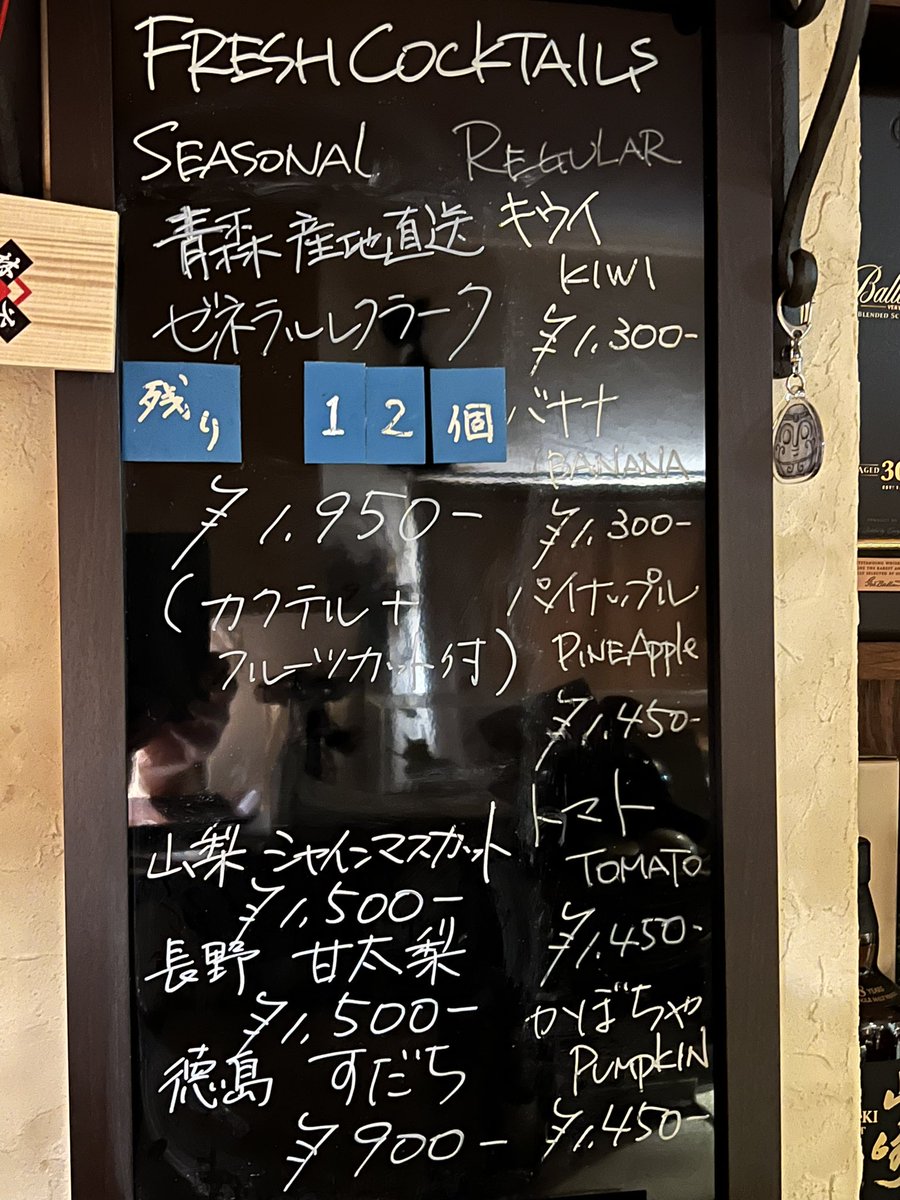 FRESH COCKTAILS
SEASONAL
青森産地直送
ゼネラルレクラーク
残り 12個
¥1,950-
(カクテル+
フルーツカット付)
山梨 シャインマスカット
¥1,500-
長野 甘太梨
¥1,500-
徳島 すだち
¥900-
REGULAR
キウイ
KIWI
¥1,300-
バナナ
BANANA
¥1,300-
パイナップル
PINEApple
¥1,450-
トマト
TOMATO
¥1,450-
かぼちゃ
PUMPKIN
¥1,450-
Ball
BLENDED SC
AGED 30